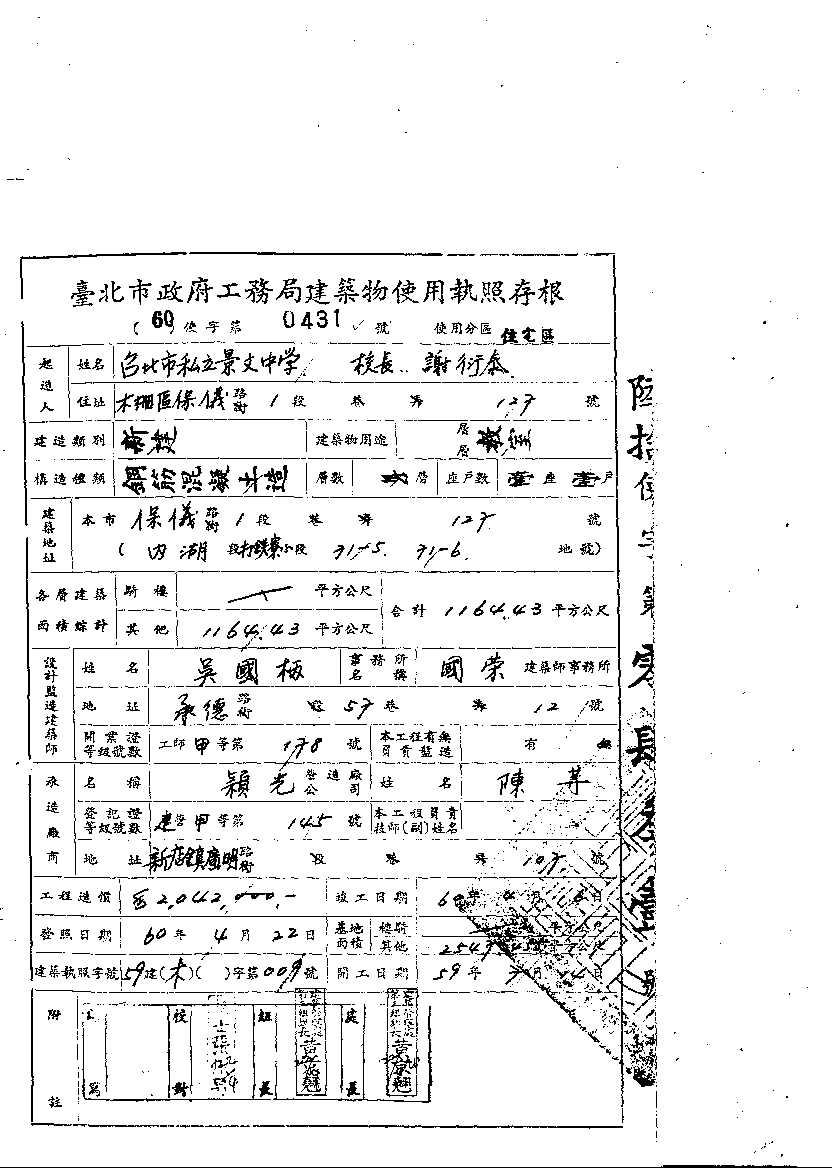 臺北市政府工務局建築物使用執照存根
(60)使字第 0431 號 使用分區 住宅區
起造人 姓名 台北市私立景文中学 校長 謝衍泰
住址 木柵區保儀路街 1段 巷 弄 127 號
建造類別 新建 建築物用途 層層 教室
構造種類 鋼筋混凝土造 層數 層 座戶數 壹座 壹戶
建築地址 本市 保儀路街 1段 巷 弄 127 號
(內湖段打鉄寮小段 71-5. 71-6. 地號)
各層建築面積綜計 騎樓 平方公尺 合計 1164.43 平方公尺
其他 1164.43 平方公尺
設計監造建築師 姓名 吳國柄 事務所名稱 國榮 建築師事務所
地址 承德路街 段 57巷 弄 12號
開業證等級號數 工師甲等第 178 號 本工程有無負責監造 有 無
承造廠商 名稱 穎光 營造廠公司 姓名 陳
登記證等級號數 建營甲等第 145 號 本工程負責技師(副)姓名
地址 新店鎮廣明路街 段 巷 弄 107 號
工程造價 2,042,000.- 竣工日期 60年 4月 16日
發照日期 60年 4月 22日 基地面積 樓騎 平方公尺
其他 平方公尺
建築執照字號 59建(木)( )字第009號 開工日期 59年 月 14日
附註 校對 組長 處長
陸拾使字第零肆
號